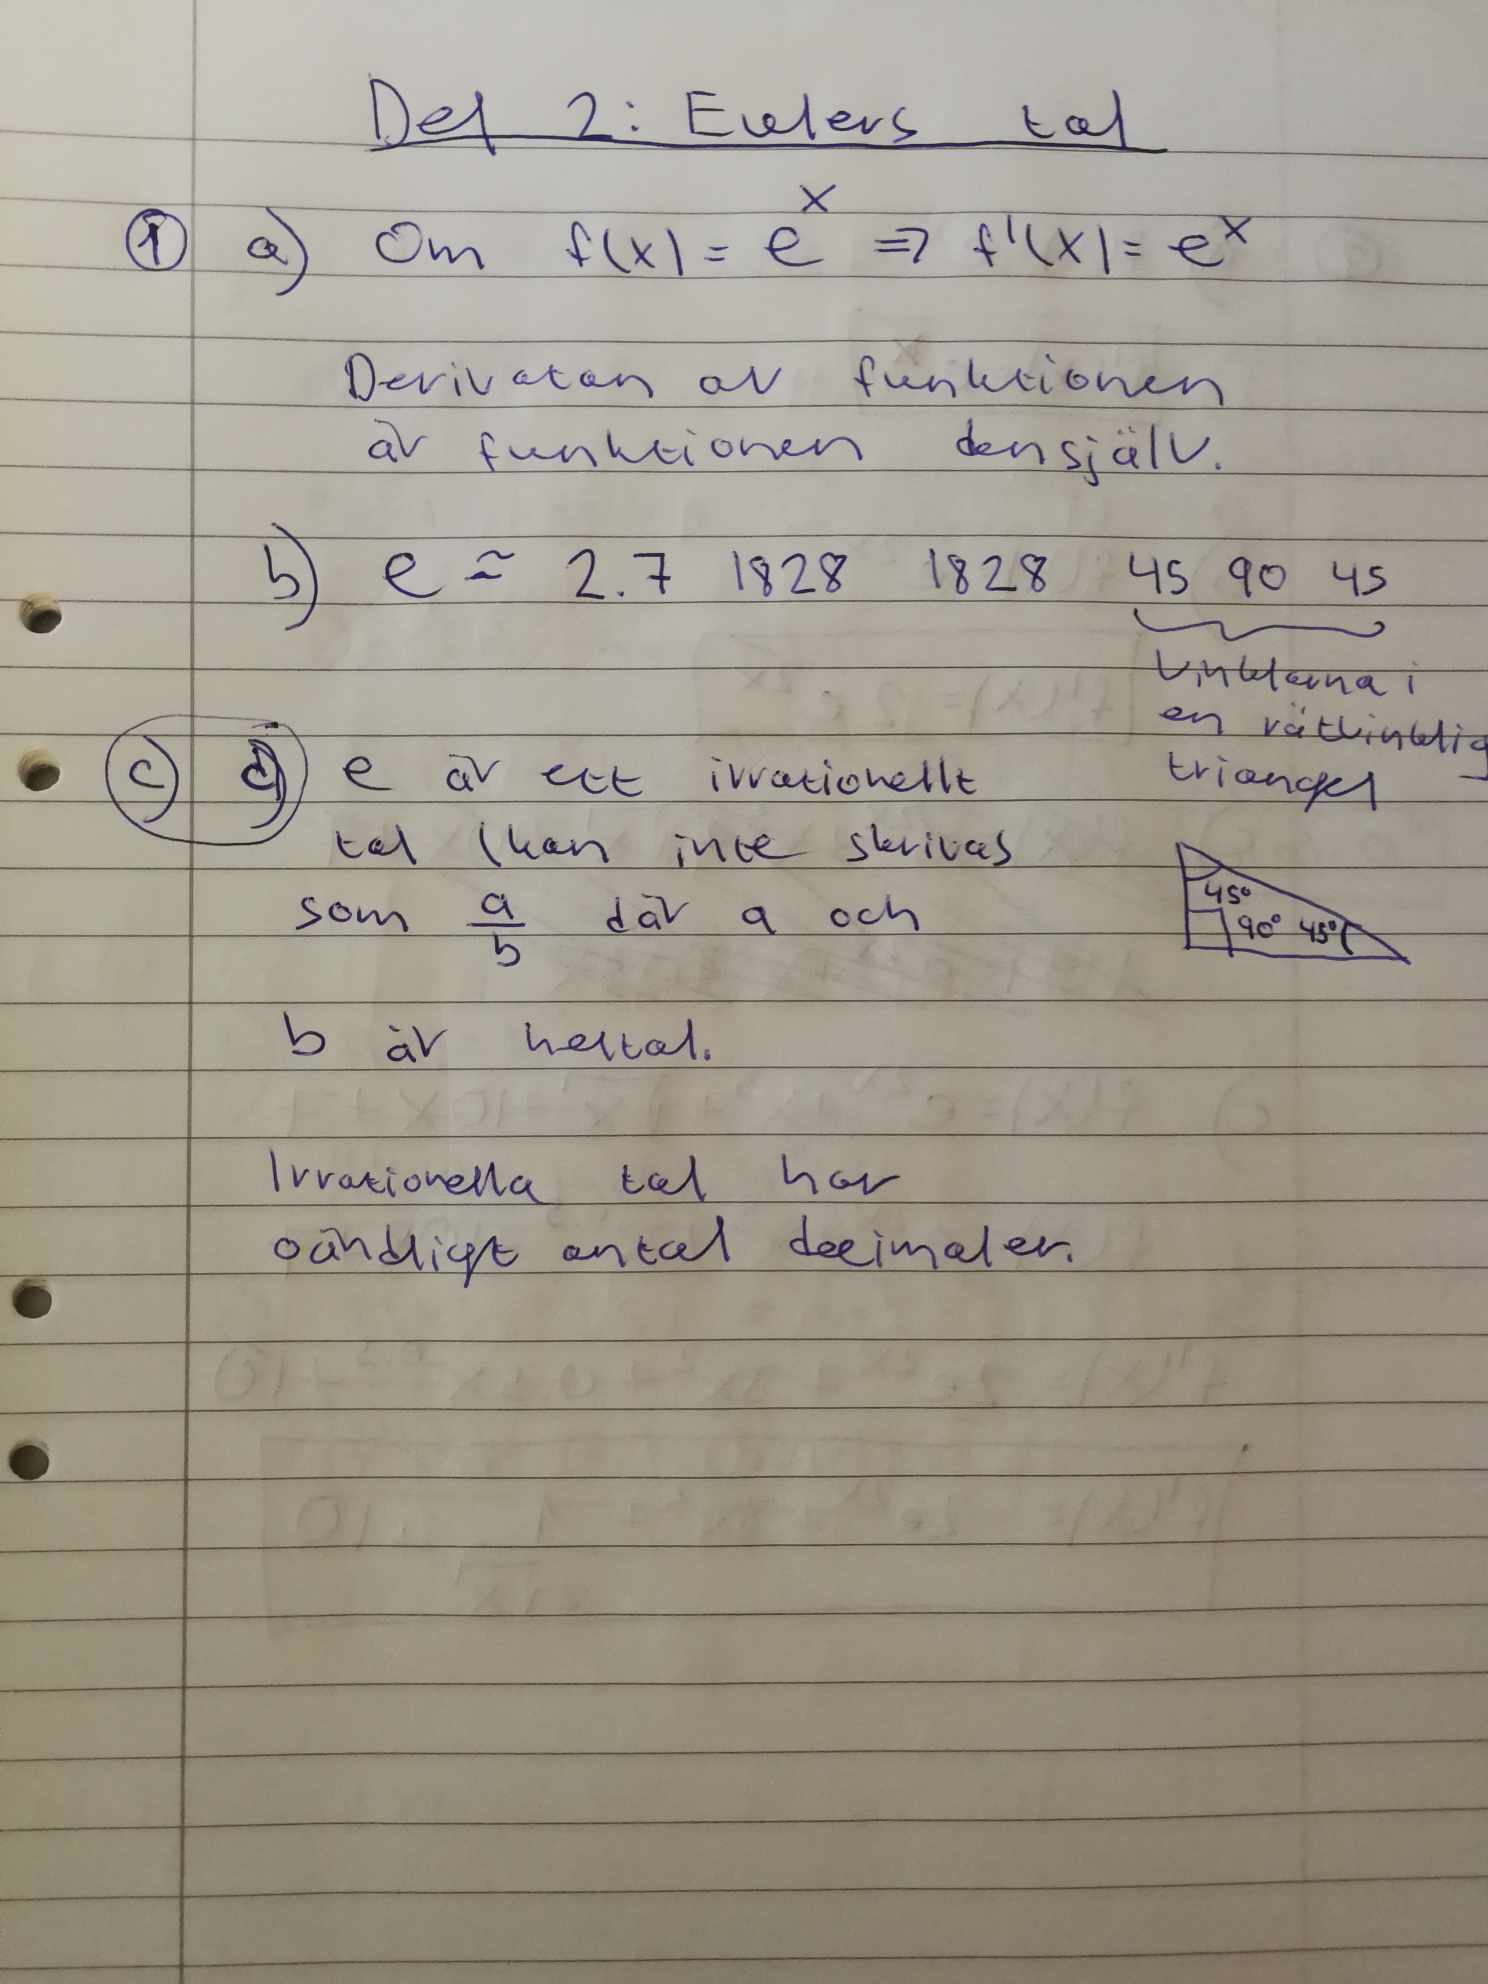 Del 2: Eulers tal
① a) Om f(x) = e^x => f'(x) = e^x
Derivatan av funktionen
är funktionen densjälv.
b) e ≈ 2.7 1828 1828 45 90 45
Vinklarna i
en rätvinklig
triangel
c) d) e är ett irrationellt
tal (kan inte skrivas
som a/b där a och
45°
90° 45°
b är heltal.
Irrationella tal har
oändligt antal decimaler.